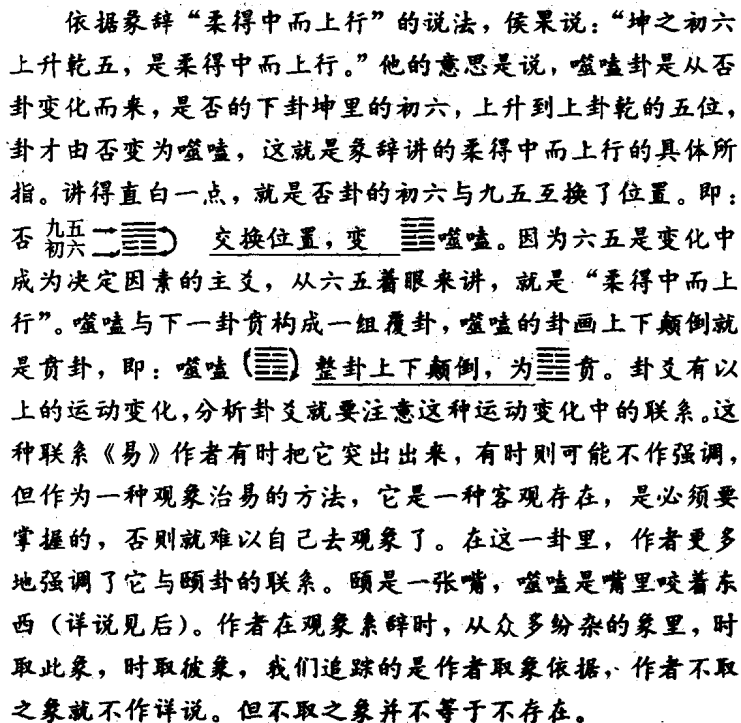 依据彖辞“柔得中而上行”的说法，侯果说：“坤之初六
上升乾五，是柔得中而上行。”他的意思是说，噬嗑卦是从否
卦变化而来，是否的下卦坤里的初六，上升到上卦乾的五位，
卦才由否变为噬嗑，这就是彖辞讲的柔得中而上行的具体所
指。讲得直白一点，就是否卦的初六与九五互换了位置。即：
否 九五 初六 → ䷋ 交换位置，变 ䷔噬嗑。因为六五是变化中
成为决定因素的主爻，从六五着眼来讲，就是“柔得中而上
行”。噬嗑与下一卦贲构成一组覆卦，噬嗑的卦画上下颠倒就
是贲卦，即：噬嗑（䷔）整卦上下颠倒，为䷕贲。卦爻有以
上的运动变化，分析卦爻就要注意这种运动变化中的联系。这
种联系《易》作者有时把它突出出来，有时则可能不作强调，
但作为一种观象治易的方法，它是一种客观存在，是必须要
掌握的，否则就难以自己去观象了。在这一卦里，作者更多
地强调了它与颐卦的联系。颐是一张嘴，噬嗑是嘴里咬着东
西（详说见后）。作者在观象系辞时，从众多纷杂的象里，时
取此象，时取彼象，我们追踪的是作者取象依据，作者不取
之象就不作详说。但不取之象并不等于不存在。